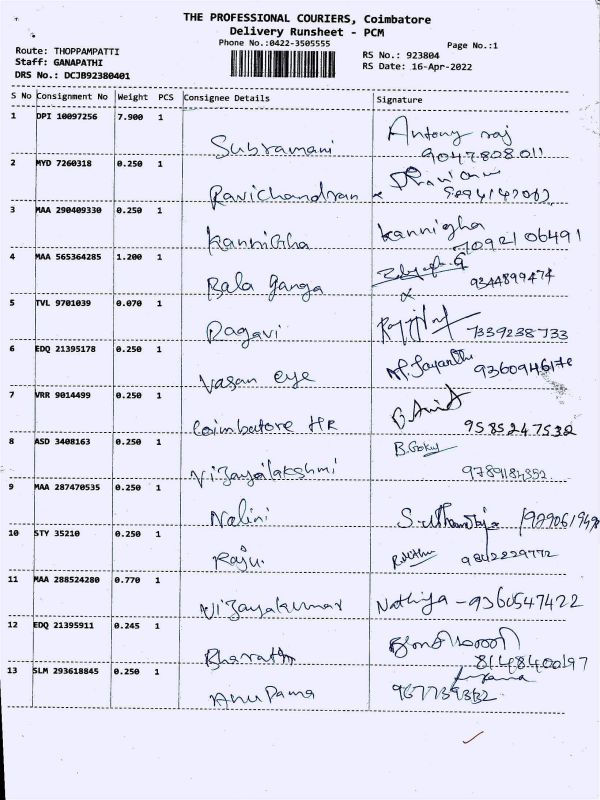 THE PROFESSIONAL COURIERS, Coimbatore
Delivery Runsheet - PCM
Phone No.:0422-3505555
Page No.:1
Route: THOPPAMPATTI
Staff: GANAPATHI
DRS No.: DCJB92380401
RS No.: 923804
RS Date: 16-Apr-2022
S No Consignment No Weight PCS Consignee Details Signature
1 DPI 10097256 7.900 1
Subramani Antony raj
9047808011
2 MYD 7260318 0.250 1
Ravichandran
3 MAA 290409330 0.250 1
Kannigha Kannigha
7092106491
4 MAA 565364285 1.200 1
Bala Ganga 9344899474
5 TVL 9701039 0.070 1
Ragavi 7339238733
6 EDQ 21395178 0.250 1
Vasan eye M. Jayanthi
7 VRR 9014499 0.250 1
Coimbatore HR G. Amit
9585247532
8 ASD 3408163 0.250 1
Vijayalakshmi B.Gokul
9789184352
9 MAA 287470535 0.250 1
Nalini
10 STY 35210 0.250 1
Raju. 9842229772
11 MAA 288524280 0.770 1
Vijayakumar Nathiya - 9360547422
12 EDQ 21395911 0.245 1
Bharath 8148400197
13 SLM 293618845 0.250 1
Anupama